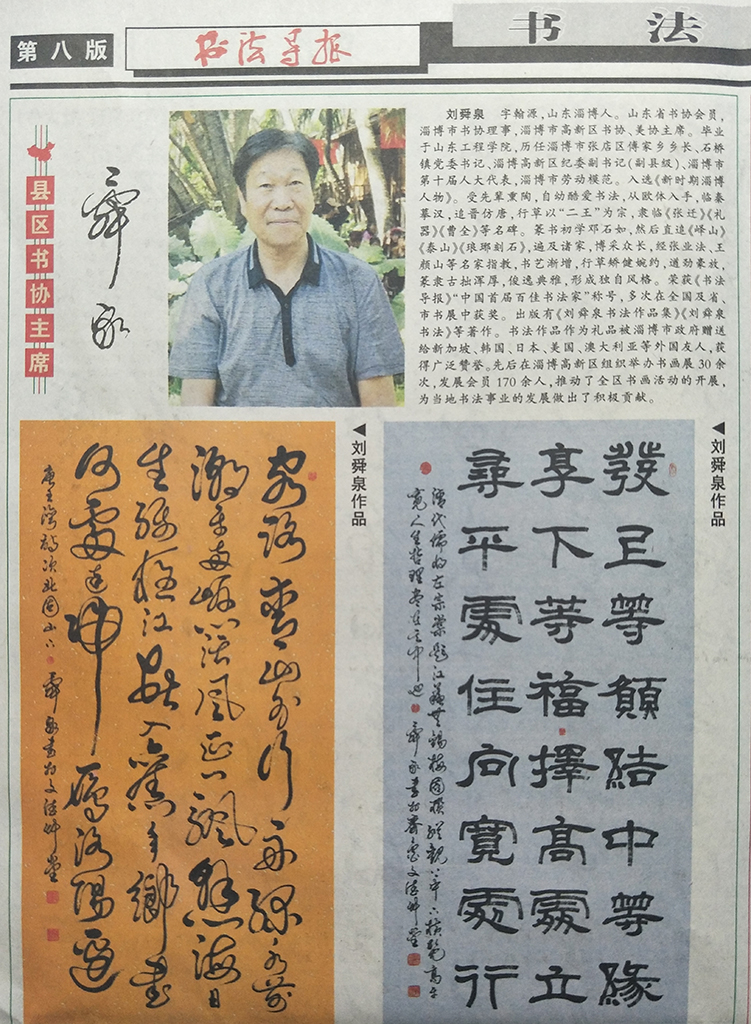 第八版
书法导报
书 法
县区书协主席
舜泉
刘舜泉 字翰源,山东淄博人。山东省书协会员,
淄博市书协理事,淄博市高新区书协、美协主席。毕业
于山东工程学院,历任淄博市张店区傅家乡乡长、石桥
镇党委书记、淄博高新区纪委副书记(副县级)、淄博市
第十届人大代表,淄博市劳动模范。入选《新时期淄博
人物》。受先辈熏陶,自幼酷爱书法,从欧体入手,临秦
摹汉,追晋仿唐,行草以“二王”为宗,隶临《张迁》《礼
器》《曹全》等名碑。篆书初学邓石如,然后直追《峄山》
《泰山》《琅琊刻石》,遍及诸家,博采众长,经张业法、王
颜山等名家指教,书艺渐增,行草矫健婉约,遒劲豪放,
篆隶古拙浑厚,俊逸典雅,形成独自风格。荣获《书法
导报》“中国首届百佳书法家”称号,多次在全国及省、
市书展中获奖。出版有《刘舜泉书法作品集》《刘舜泉
书法》等著作。书法作品作为礼品被淄博市政府赠送
给新加坡、韩国、日本、美国、澳大利亚等外国友人,获
得广泛赞誉。先后在淄博高新区组织举办书画展30余
次,发展会员170余人,推动了全区书画活动的开展,
为当地书法事业的发展做出了积极贡献。
◀刘舜泉作品
發上等願結中等緣
享下等福擇高處立
尋平處住向寬處行
◀刘舜泉作品
客路青山外行舟綠水前
潮平兩岸闊風正一帆懸海日
生殘夜江春入舊年鄉書
何處達歸雁洛陽邊
唐王灣詩次北固山下 舜泉書於文德草堂